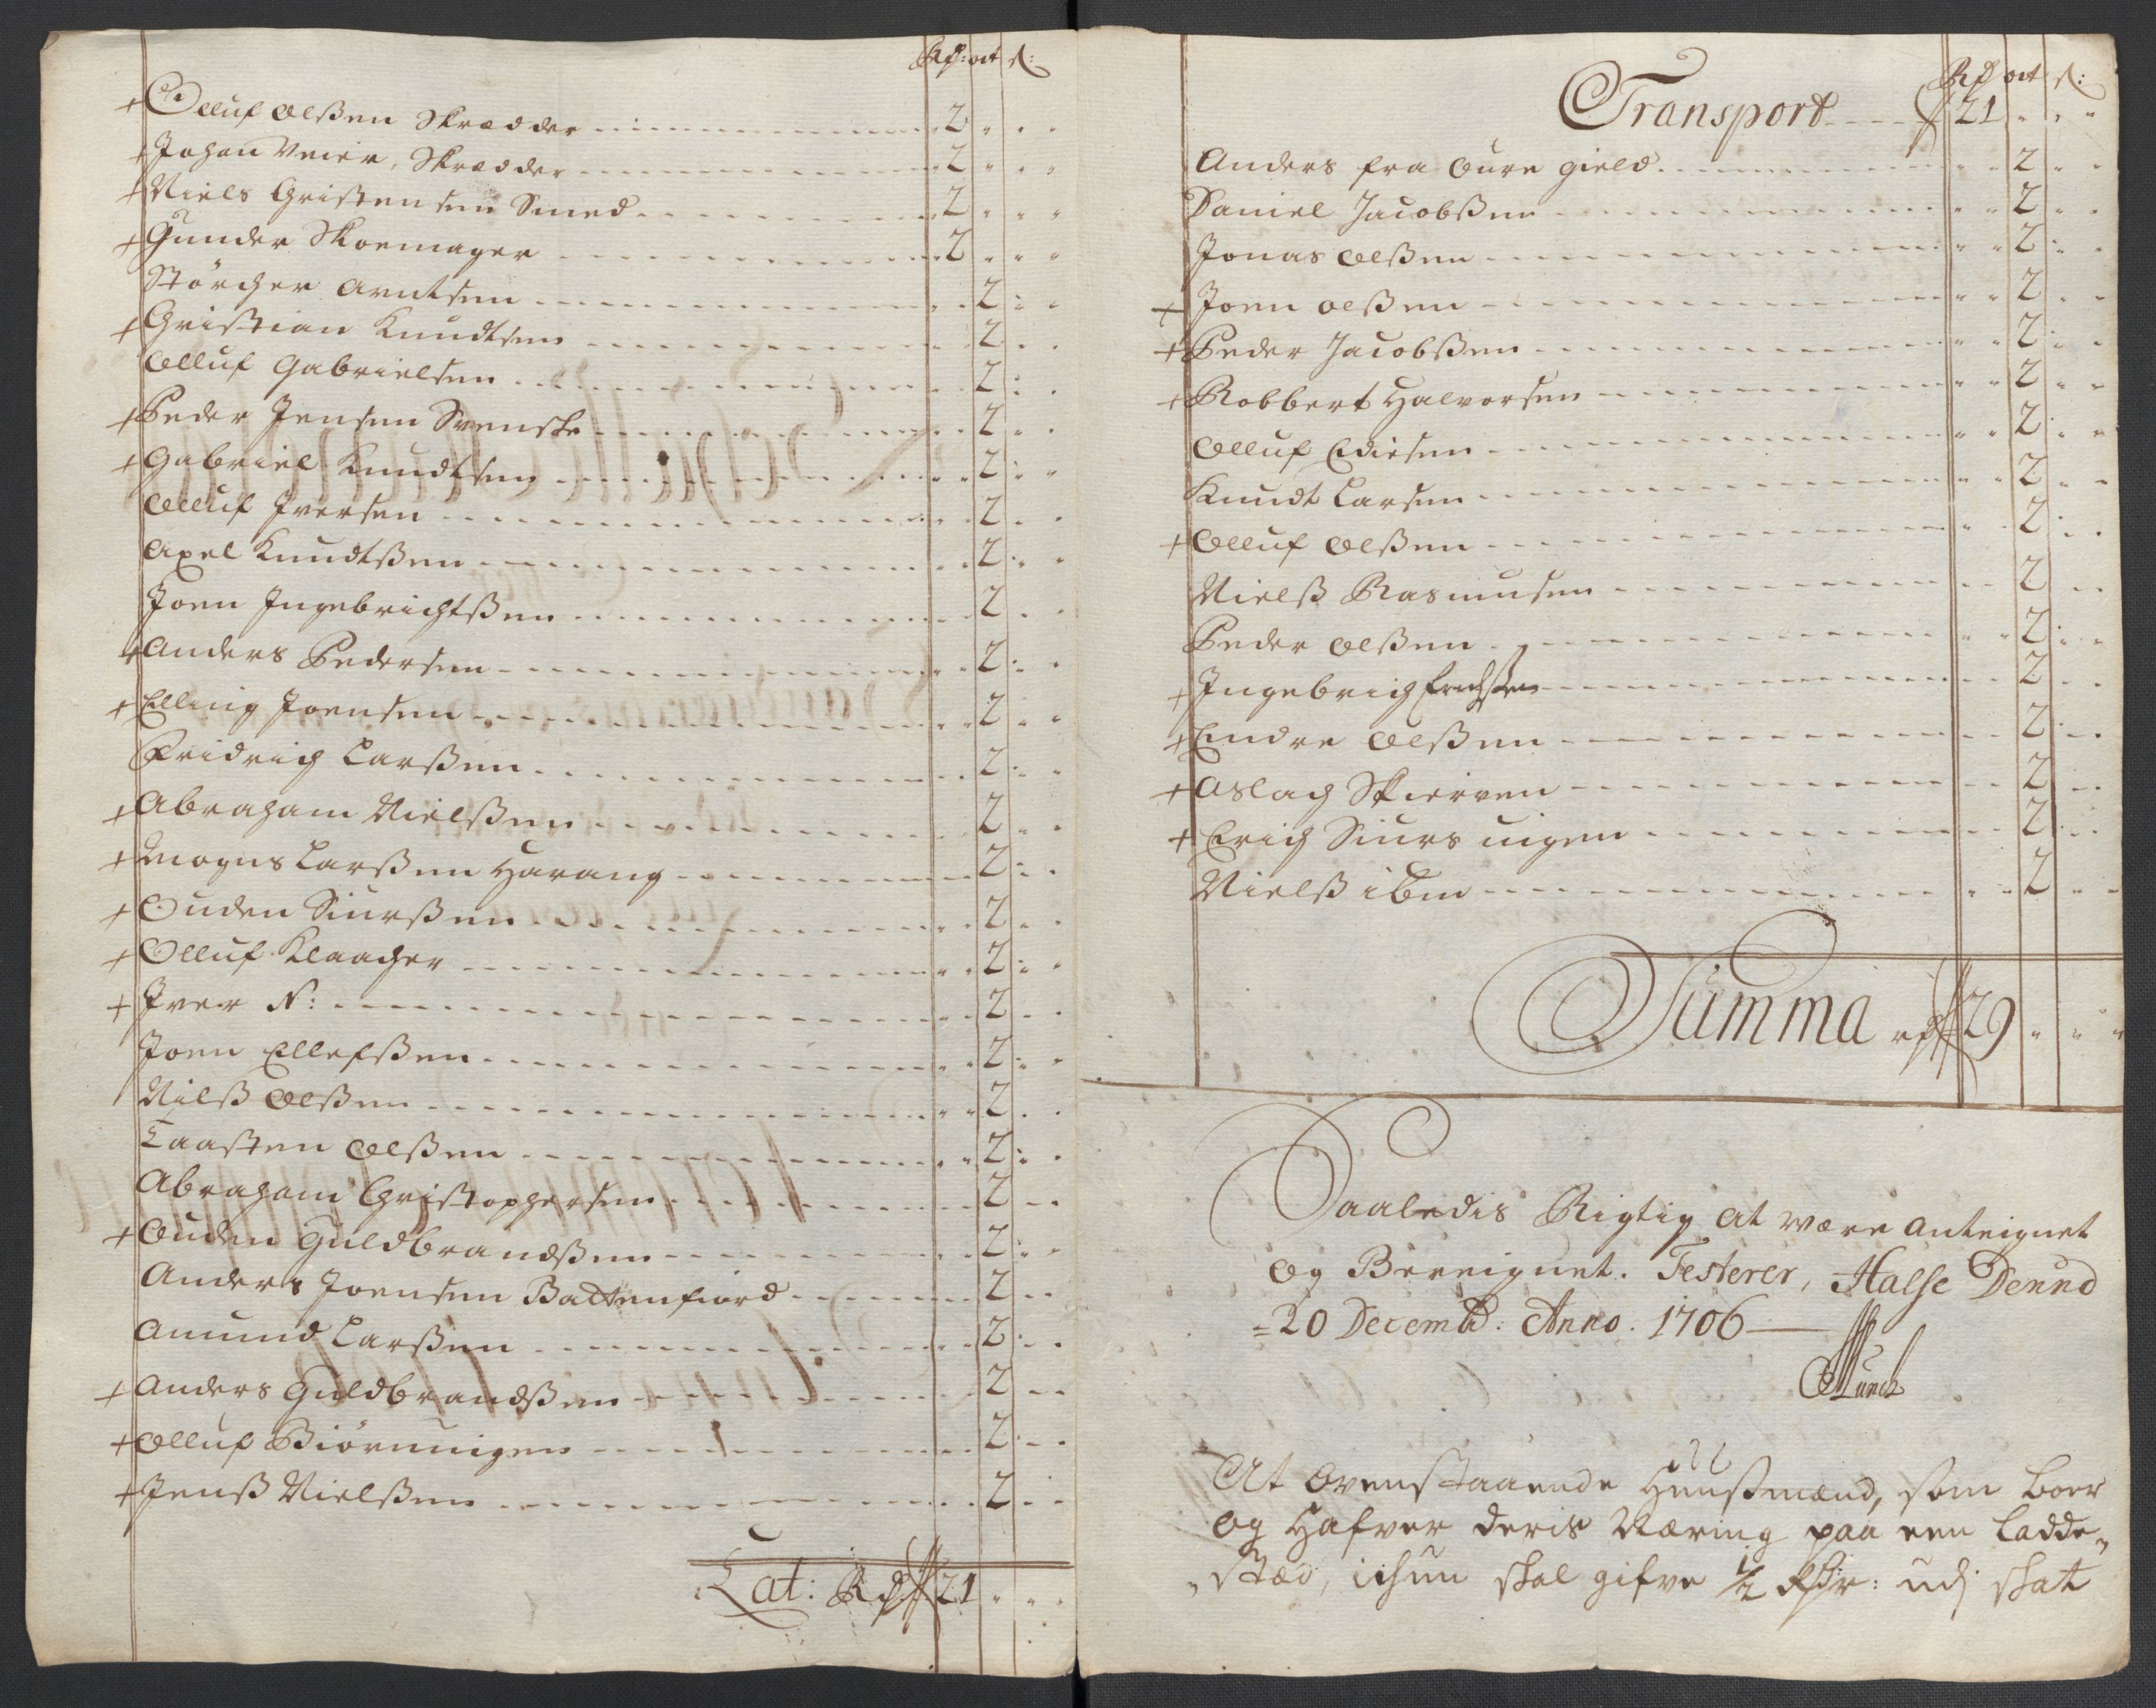 Rd: ort s:
+ Olluf Olßen Skrædder 2
+ Johan Meier, Skrædder 2
+ Niels Christensen Smed 2
+ Gunder Skoemager 2
Störcher Arntsen 2
+ Christian Knudtsen 2
Olluf Gabrielsen 2
+ Peder Jensen Svenske 2
+ Gabriel Knudtsen 2
Olluf Iversen 2
Axel Knudtßen 2
Joen Ingebrichtßen 2
+ Anders Pedersen 2
+ Elling Joensen 2
Fridrich Larßen 2
+ Abraham Nielßen 2
+ Mogns Larßen Harang 2
+ Ouden Siurßen 2
+ Olluf Klaacher 2
+ Iver N: 2
Joen Ellefßen 2
Nilß Olßen 2
Taasten Olßen 2
Abraham Christophersen 2
+ Ouden Guldbrandßen 2
Anders Joensen Battenfiord 2
Amund Larßen 2
+ Anders Guldbrandßen 2
+ Olluf Biörnuigen 2
+ Jenß Nielßen 2
Lat: Rd 21
Rd ort s:
Transport 21
Anders fra Oure gield 2
Daniel Jacobßen 2
Jonas Olßen 2
+ Joen Olßen 2
+ Peder Jacobßen 2
+ Robbert Halvorsen 2
Olluf Edisen 2
Knudt Larsen 2
+ Olluf Olßen 2
Nielß Rasmusen 2
Peder Olßen 2
+ Ingebrich Erichßen 2
+ Endre Olßen 2
+ Aslach Skierven 2
+ Erich Siursuigen 2
Nielß ibm 2
Summa rd 29
Saaledis Rigtig at være Anteignet
og Bereignet. Testerer, Halse Dend
20 Decemb: Anno. 1706
Munch
At Ovenstaaende Huußmænd, som boer
og Hafver deris Næring paa een ladde-
stæd, ichun skal gifve 1/2 Rdr: udj skat